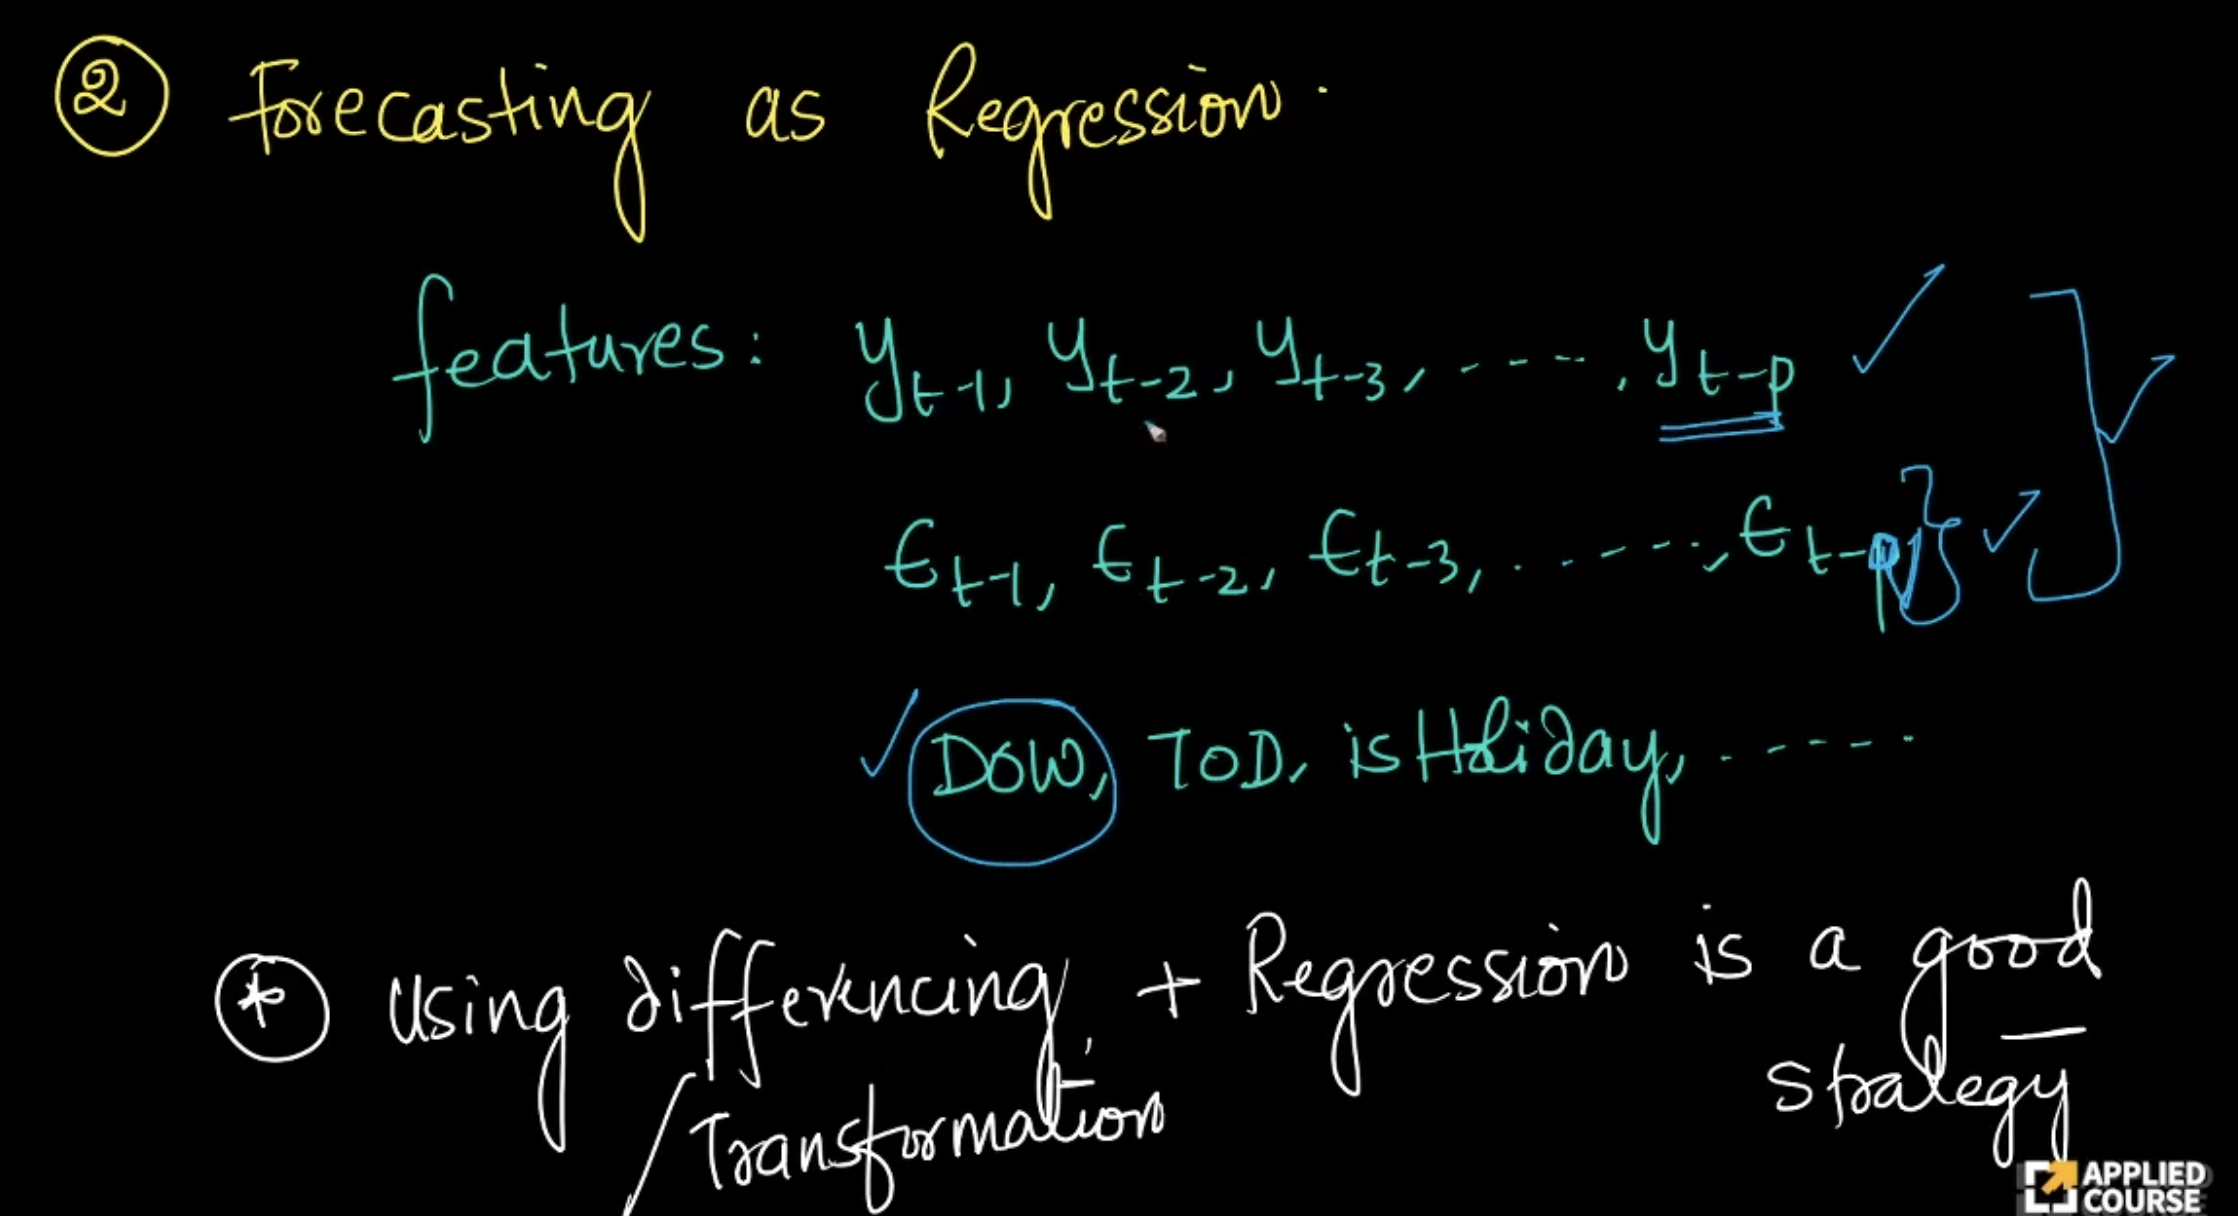 ② Forecasting as Regression.
features: y_{t-1}, y_{t-2}, y_{t-3}, ----, y_{t-p} ✓
ϵ_{t-1}, ϵ_{t-2}, ϵ_{t-3}, -----, ϵ_{t-q} ✓
✓ DOW, TOD, isHoliday, -----
* Using differencing + Regression is a good
/Transformation strategy
APPLIED
COURSE